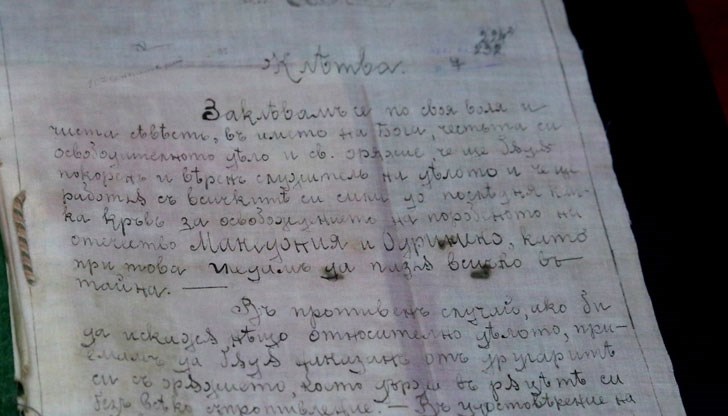 Клѣтва.
Заклѣвамъ се по своя воля и
чиста съвѣсть, въ името на Бога, честьта си
освободителното дѣло и св. орѫжие че ще бѫда
покоренъ и вѣренъ служитель на дѣлото и че ще
работѭ съ всичкитѣ си сили до послѣдня кап-
ка кръвь за освобождението на поробеното ни
отечество Македония и Одринско, като
при това тъ да пазѭ всичко въ
тайна. —
Въ противенъ случай, ако би
да искажѫ нѣщо относително дѣлото, при-
емамъ да бѫда наказанъ отъ другаритѣ
си съ орѫжието, което държѫ въ рѫцѣтѣ си
безъ всѣко съпротивление. — Въ удостовѣрение на